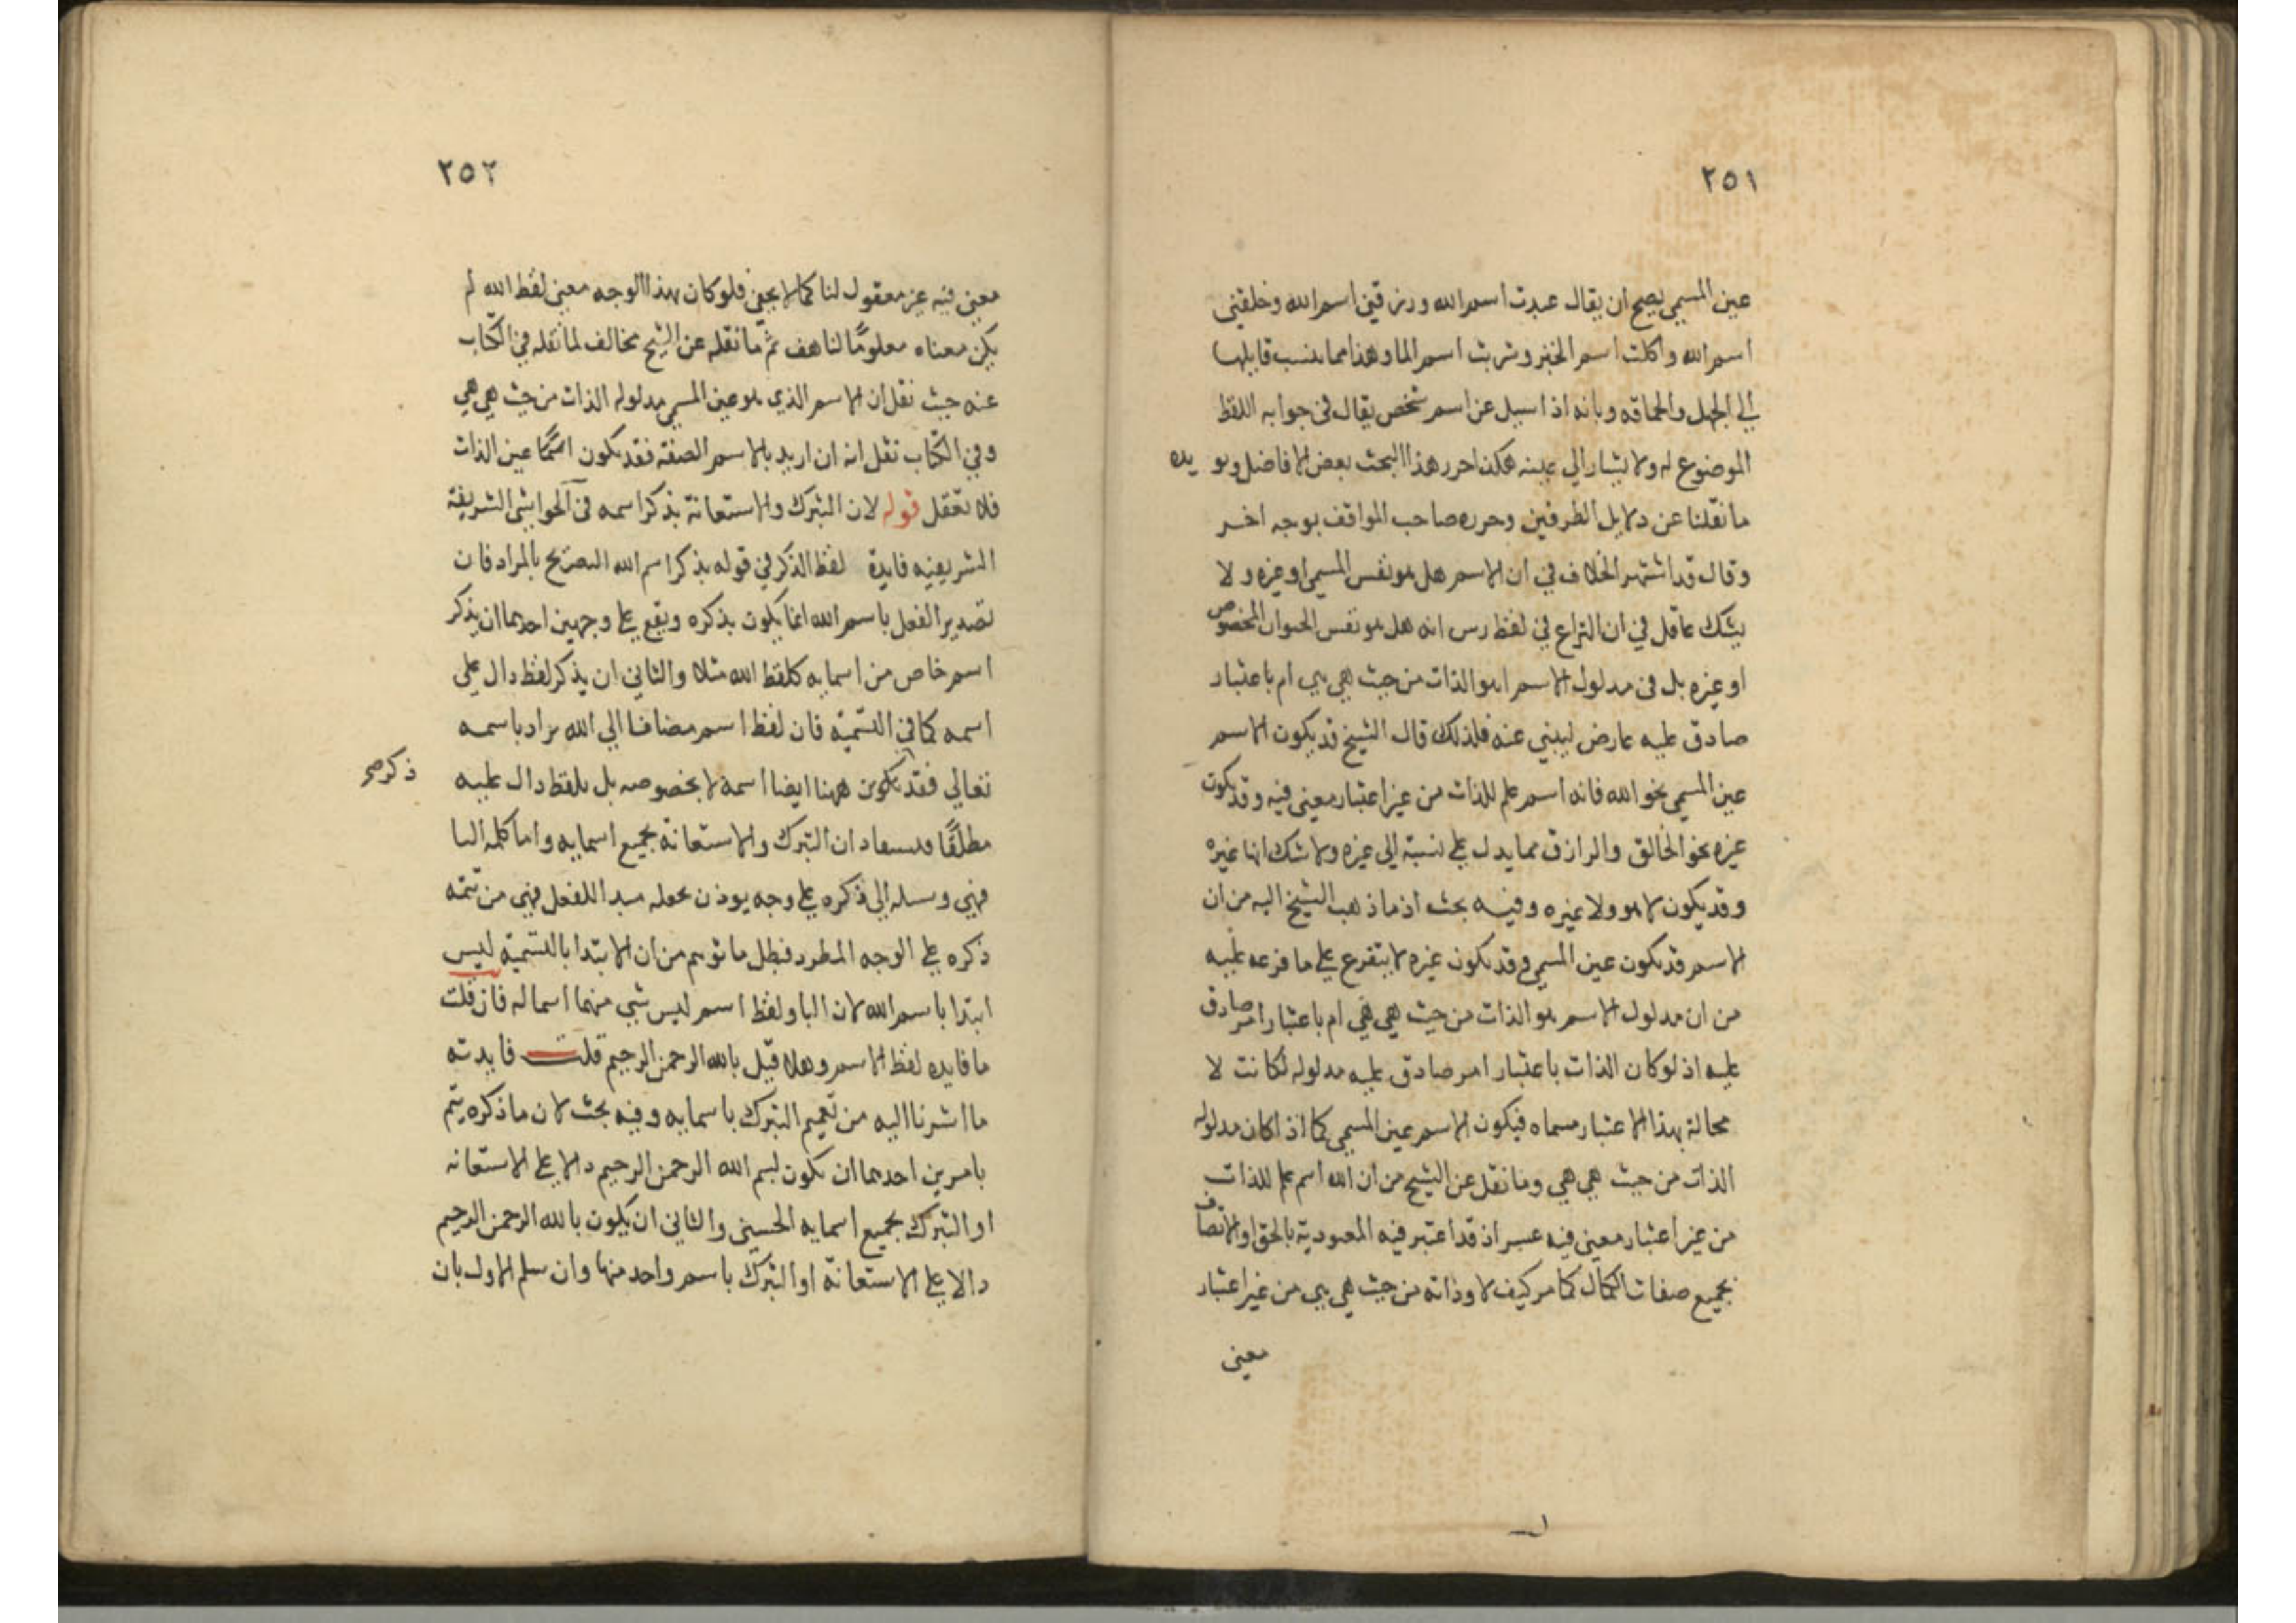 ٢٥١
عين المسمي يصح ان يقال عبدت اسم الله ورزقني اسم الله وخلقني
اسم الله واكلت اسم الخبز وشربت اسم الما وهذا مما ينسب قايلها
الي الجهل والحماقه وبانه اذا سيل عن اسم شخص يقال في جوابه اللفظ
الموضوع له ولا يشار الي عينه هكذا حرر هذا البحث بعض الافاضل ويو يده
ما نقلنا عن دلايل الطرفين وحرره صاحب المواقف بوجه اخر
وقال قد اشتهر الخلاف في ان الاسم هل هو نفس المسمي او غيره ولا
يشك عاقل في ان النزاع في لفظ رس انه هل هو نفس الحيوان المخصوص
او غيره بل في مدلول الاسم اهو الذات من حيث هي هي ام باعتبار
صادق عليه عارض ليبني عنه فلذلك قال الشيخ قد يكون الاسم
عين المسمي نحو الله فانه اسم علم للذات من غير اعتبار معني فيه وقد يكون
غيره نحو الخالق والرازق مما يدل علي نسبة الي غيره ولا شك انها غيره
وقد يكون لا هو ولا غيره وفيه بحث اذ ما ذهب الشيخ اليه من ان
الاسم قد يكون عين المسمي وقد يكون غيره لا يتفرع علي ما فرعه عليه
من ان مدلول الاسم هو الذات من حيث هي هي ام باعتبار امر صادق
عليه اذ لو كان الذات باعتبار امر صادق عليه مدلوله لكانت لا
محالة بهذا الاعتبار مسماه فيكون الاسم عين المسمي كما اذا كان مدلوله
الذات من حيث هي هي وما نقل عن الشيخ من ان الله اسم علم للذات
من غير اعتبار معني فيه عسر اذ قد اعتبر فيه المعبودية بالحق او الاتصاف
بجميع صفات الكمال كما مر كيف لا وذاته من حيث هي هي من غير اعتبار
معني
٢٥٢
معني فيه غير معقول لنا كما لا يخفي فلو كان بهذا الوجه معني لفظ الله لم
يكن معناه معلومًا لنا هف ثم ما نقله عن الشيخ مخالف لما نقله في الكتاب
عنه حيث نقل ان الاسم الذي هو عين المسمي مدلوله الذات من حيث هي هي
وفي الكتاب نقل انه ان اريد بالاسم الصفة فقد يكون اسمًا عين الذات
فلا تعقل قوله لان التبرك والاستعانة بذكر اسمه في الحواشي الشريفة
الشريفيه فايدة لفظ الذكر في قوله بذكر اسم الله التصريح بالمراد فان
تصدير الفعل باسم الله انما يكون بذكره ويقع علي وجهين احدهما ان يذكر
اسم خاص من اسمايه كلفظ الله مثلا والثاني ان يذكر لفظ دال علي
اسمه كما في التسمية فان لفظ اسم مضافا الي الله يراد باسمه
تعالي فقد يكون ههنا ايضا اسمه لا بخصوصه بل بلفظ دال عليه
ذكر صح
مطلقًا فيستفاد ان التبرك والاستعانة بجميع اسمايه واما كلمة البا
فهي وسيله الي ذكره علي وجه يوذن بجعله مبدا للفعل فهي من تتمه
ذكره علي الوجه المطرد فبطل ما توهم من ان الابتدا بالتسمية ليس
ابتدا باسم الله لان البا ولفظ اسم ليس شي منهما اسما له فان قلت
ما فايده لفظ الاسم وهلا قيل بالله الرحمن الرحيم قلت فايدته
ما اشرنا اليه من تعميم التبرك باسمايه وفيه بحث لان ما ذكره يتم
بامرين احدهما ان يكون بسم الله الرحمن الرحيم دالا علي الاستعانه
او التبرك بجميع اسمايه الحسني والثاني ان يكون بالله الرحمن الرحيم
دالا علي الاستعانة او التبرك باسم واحد منها وان سلم الاول بان